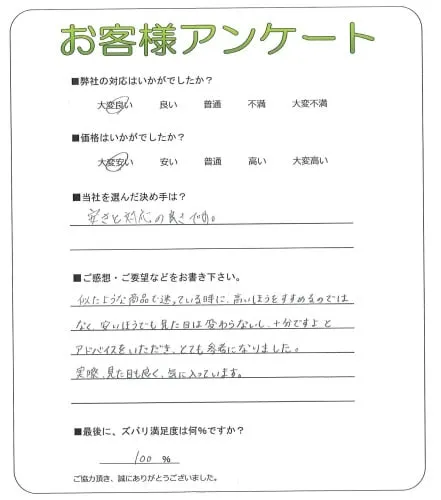 お客様アンケート
■弊社の対応はいかがでしたか？
大変良い 良い 普通 不満 大変不満
■価格はいかがでしたか？
大変安い 安い 普通 高い 大変高い
■当社を選んだ決め手は？
安さと対応の良さです。
■ご感想・ご要望などをお書き下さい。
似たような商品で迷っている時に、高いほうをすすめるのでは
なく、安いほうでも見た目は変わらないし、十分ですよと
アドバイスをいただき、とても参考になりました。
実際、見た目も良く、気に入っています。
■最後に、ズバリ満足度は何％ですか？
100 ％
ご協力頂き、誠にありがとうございました。